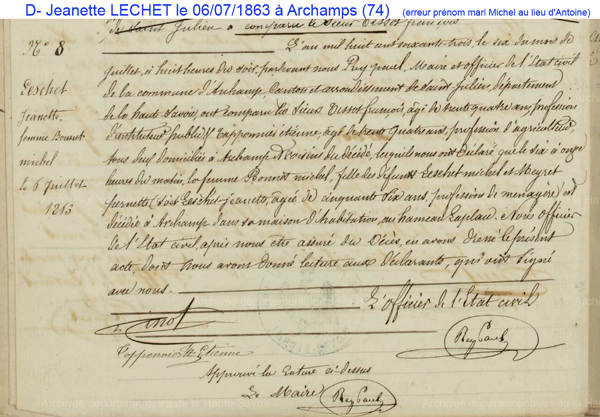 D- Jeanette LECHET le 06/07/1863 à Archamps (74) (erreur prénom mari Michel au lieu d'Antoine)
de Saint Julien a comparu le Sieur Dessot françois
N° 8
L'an mil huit cent soixante-trois, le six du mois de
juillet, à huit heures du soir, pardevant nous Rey paul, Maire et officier de l'Etat civil
Leschet
de la commune d'Archamp, Canton et arrondissement de Saint Julien, département
Jeanette,
de la haute Savoie, ont comparu les Sieurs Dessot françois, âgé de trente quatre ans, profession
femme Bonnet
d'instituteur public & Tapponnier etienne, âgé de trente quatre ans, profession d'agriculteur
michel
tous deux domiciliés à Archamp et voisins du décédé, lesquels nous ont déclaré que le six à onze
le 6 Juillet
heures du matin, la femme michel, fille des défunts Leschet michel et Meyret
1863
pernette, Leschet jeanette, agée de cinquante ans, profession de menagère, est
décédée à Archamp dans sa maison d'habitation, au hameau Nous officier
de l'Etat civil, après nous etre assuré du Décès, en avons dressé le présent
acte, dont nous avons donné lecture aux déclarants, qui ont signé
avec nous.
L'officier de l'Etat civil
Tapponnier Etienne
Rey Paul
Approuvé la rature ci-dessus
Le Maire Rey Paul